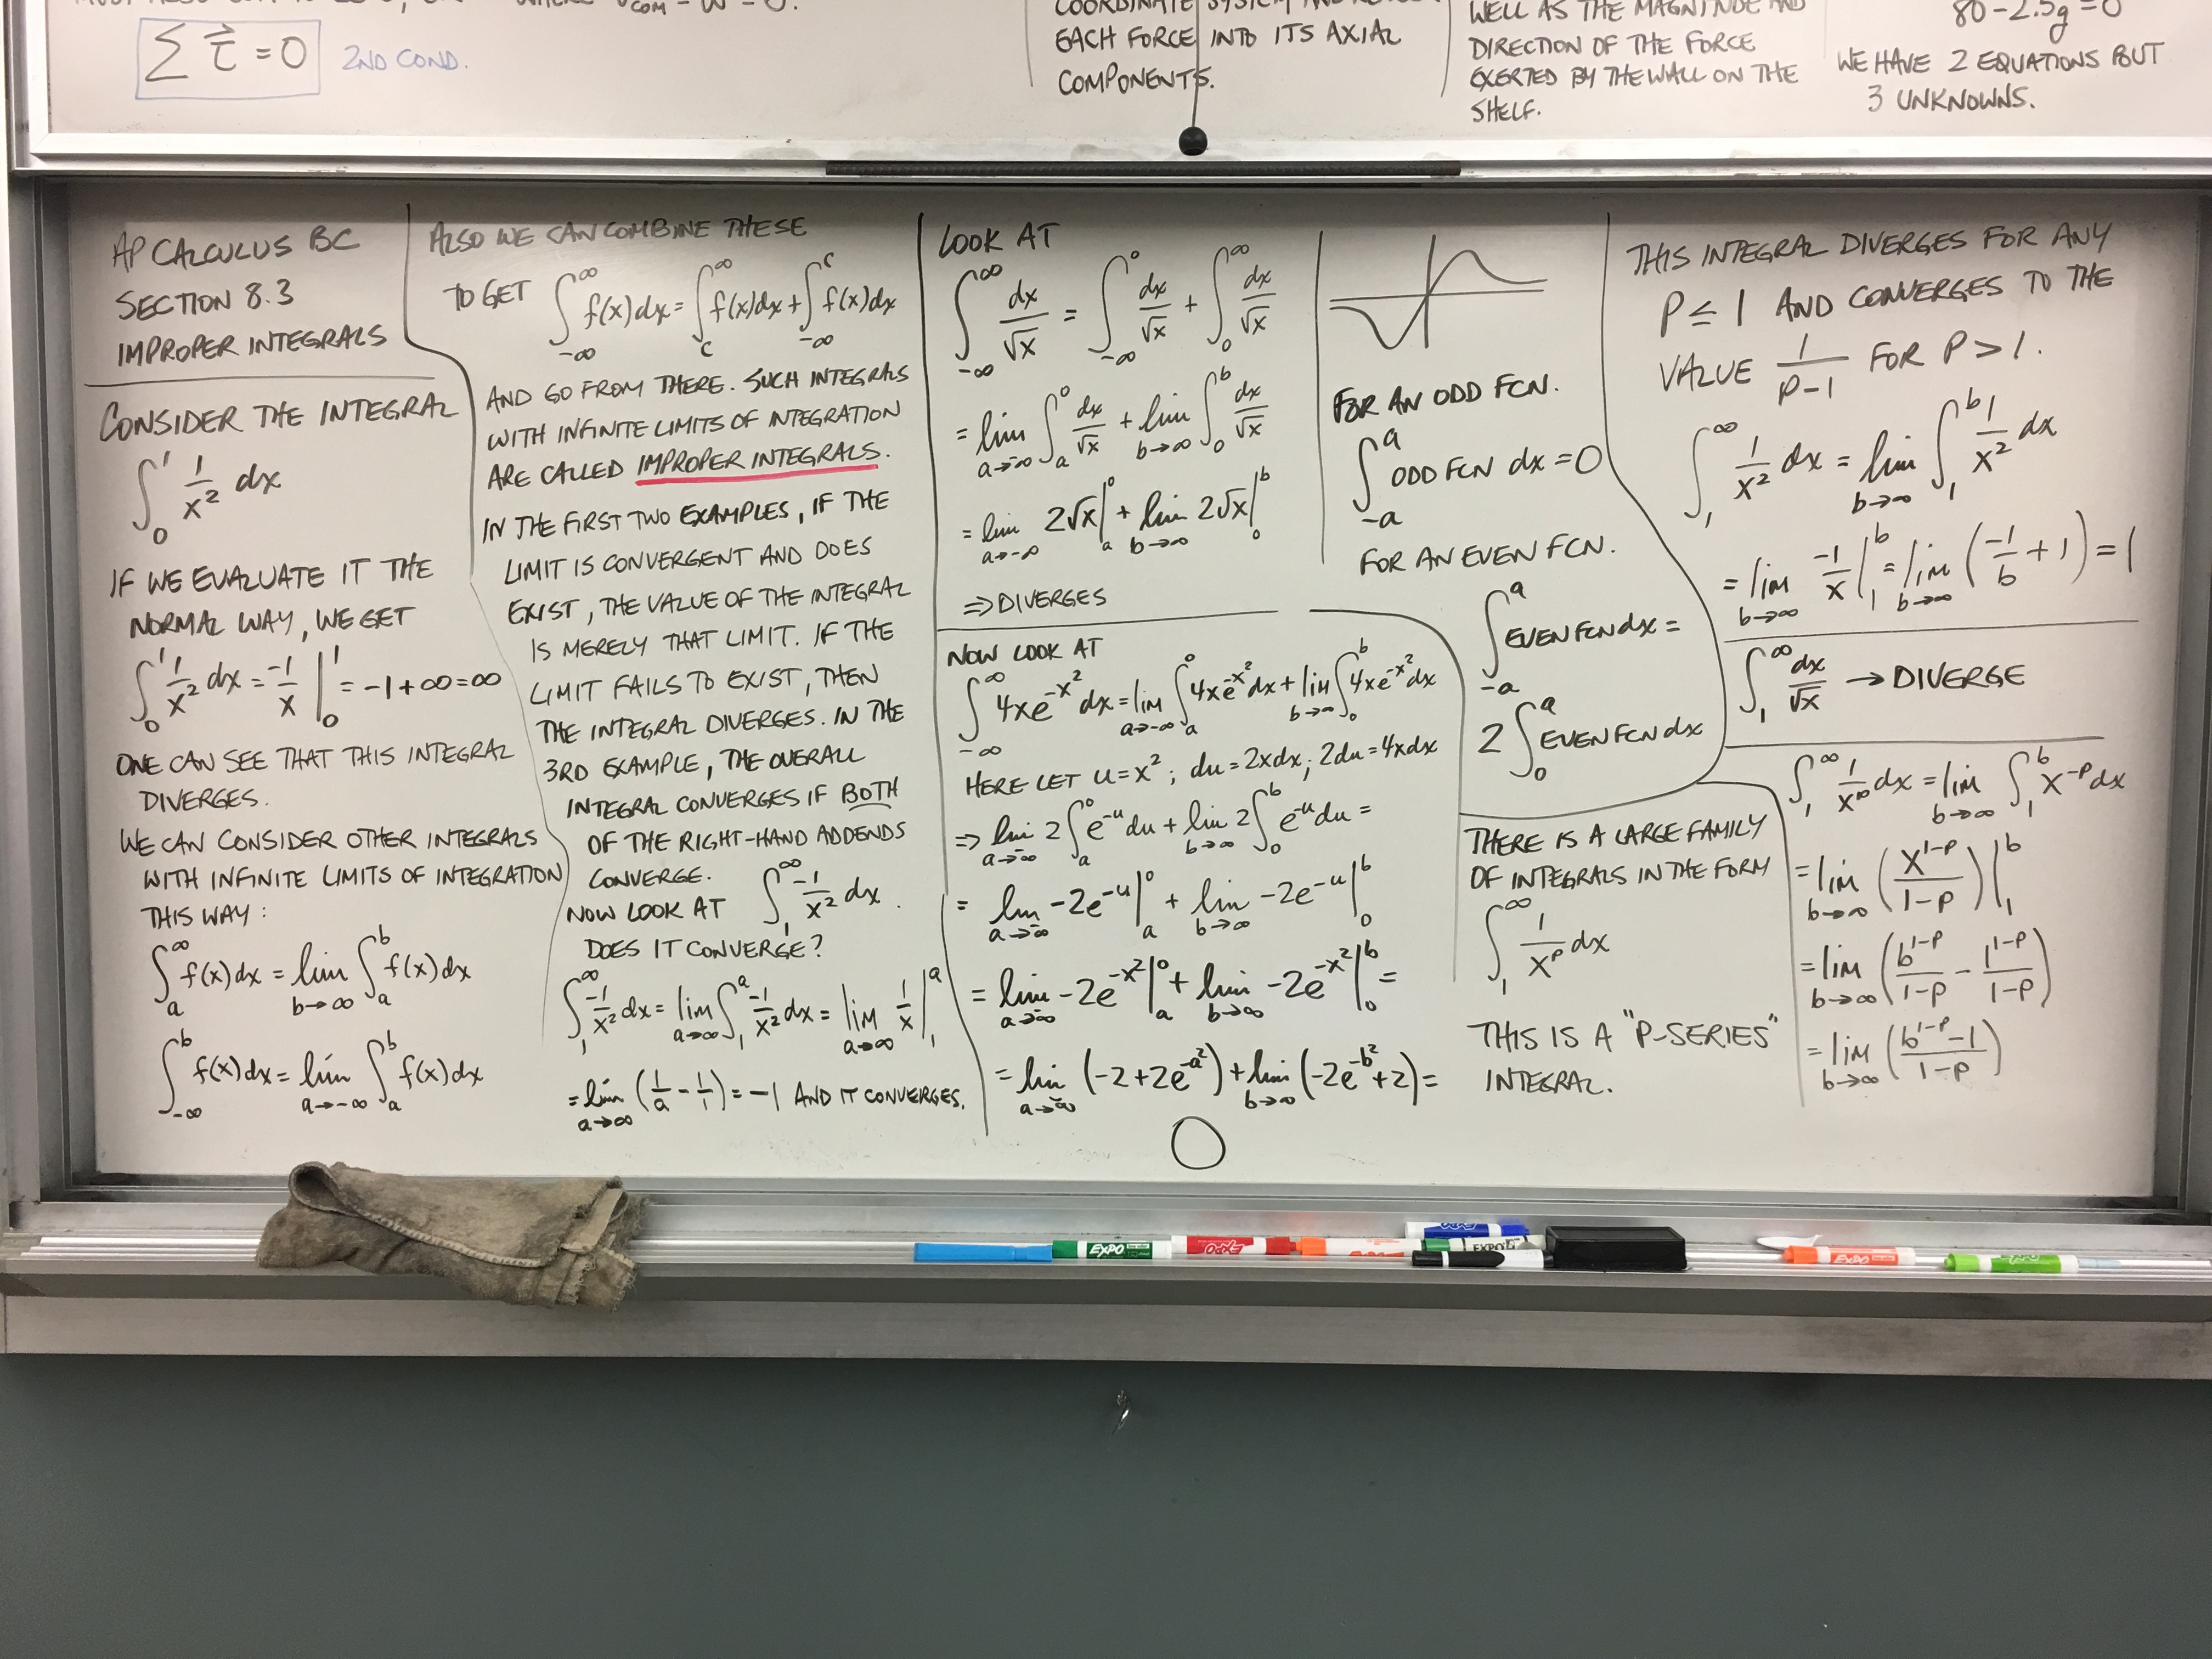 ∑ τ⃗ = 0 2ND COND.
EACH FORCE INTO ITS AXIAL
COMPONENTS.
WELL AS THE MAGNITUDE AND
DIRECTION OF THE FORCE
EXERTED BY THE WALL ON THE
SHELF.
80 - 2.5g = 0
WE HAVE 2 EQUATIONS BUT
3 UNKNOWNS.
AP CALCULUS BC
SECTION 8.3
IMPROPER INTEGRALS
CONSIDER THE INTEGRAL
∫₀¹ 1/x² dx
IF WE EVALUATE IT THE
NORMAL WAY, WE GET
∫₀¹ 1/x² dx = -1/x |₀¹ = -1+∞=∞
ONE CAN SEE THAT THIS INTEGRAL
DIVERGES.
WE CAN CONSIDER OTHER INTEGRALS
WITH INFINITE LIMITS OF INTEGRATION
THIS WAY:
∫_a^∞ f(x)dx = lim_{b→∞} ∫_a^b f(x)dx
∫_{-∞}^b f(x)dx = lim_{a→-∞} ∫_a^b f(x)dx
ALSO WE CAN COMBINE THESE
TO GET ∫_{-∞}^∞ f(x)dx = ∫_c^∞ f(x)dx + ∫_{-∞}^c f(x)dx
AND GO FROM THERE. SUCH INTEGRALS
WITH INFINITE LIMITS OF INTEGRATION
ARE CALLED IMPROPER INTEGRALS.
IN THE FIRST TWO EXAMPLES, IF THE
LIMIT IS CONVERGENT AND DOES
EXIST, THE VALUE OF THE INTEGRAL
IS MERELY THAT LIMIT. IF THE
LIMIT FAILS TO EXIST, THEN
THE INTEGRAL DIVERGES. IN THE
3RD EXAMPLE, THE OVERALL
INTEGRAL CONVERGES IF BOTH
OF THE RIGHT-HAND ADDENDS
CONVERGE.
NOW LOOK AT ∫₁^∞ -1/x² dx.
DOES IT CONVERGE?
∫₁^∞ -1/x² dx = lim_{a→∞} ∫₁^a -1/x² dx = lim_{a→∞} 1/x |₁^a
= lim_{a→∞} (1/a - 1/1) = -1 AND IT CONVERGES.
LOOK AT
∫_{-∞}^∞ dx/√x = ∫_{-∞}^0 dx/√x + ∫_0^∞ dx/√x
= lim_{a→-∞} ∫_a^0 dx/√x + lim_{b→∞} ∫_0^b dx/√x
= lim_{a→-∞} 2√x |_a^0 + lim_{b→∞} 2√x |_0^b
⇒ DIVERGES
NOW LOOK AT
∫_{-∞}^∞ 4xe^{-x²} dx = lim_{a→-∞} ∫_a^0 4xe^{-x²} dx + lim_{b→∞} ∫_0^b 4xe^{-x²} dx
HERE LET u = x²; du = 2xdx; 2du = 4xdx
⇒ lim_{a→-∞} 2∫_a^0 e^{-u} du + lim_{b→∞} 2∫_0^b e^{-u} du =
= lim_{a→-∞} -2e^{-u} |_a^0 + lim_{b→∞} -2e^{-u} |_0^b
= lim_{a→-∞} -2e^{-x²} |_a^0 + lim_{b→∞} -2e^{-x²} |_0^b =
= lim_{a→-∞} (-2+2e^{-a²}) + lim_{b→∞} (-2e^{-b²}+2) =
0
FOR AN ODD FCN.
∫_{-a}^a ODD FCN dx = 0
FOR AN EVEN FCN.
∫_{-a}^a EVEN FCN dx =
2 ∫_0^a EVEN FCN dx
THERE IS A LARGE FAMILY
OF INTEGRALS IN THE FORM
∫₁^∞ 1/x^p dx
THIS IS A "P-SERIES"
INTEGRAL.
THIS INTEGRAL DIVERGES FOR ANY
P ≤ 1 AND CONVERGES TO THE
VALUE 1/(P-1) FOR P > 1.
∫₁^∞ 1/x² dx = lim_{b→∞} ∫₁^b 1/x² dx
= lim_{b→∞} -1/x |₁^b = lim_{b→∞} (-1/b + 1) = 1
∫₁^∞ dx/√x → DIVERGE
∫₁^∞ 1/x^p dx = lim_{b→∞} ∫₁^b x^{-p} dx
= lim_{b→∞} (x^{1-p}/(1-p)) |₁^b
= lim_{b→∞} (b^{1-p}/(1-p) - 1^{1-p}/(1-p))
= lim_{b→∞} ((b^{1-p} - 1)/(1-p))
EXPO
EXPO
EXPO
EXPO
EXPO